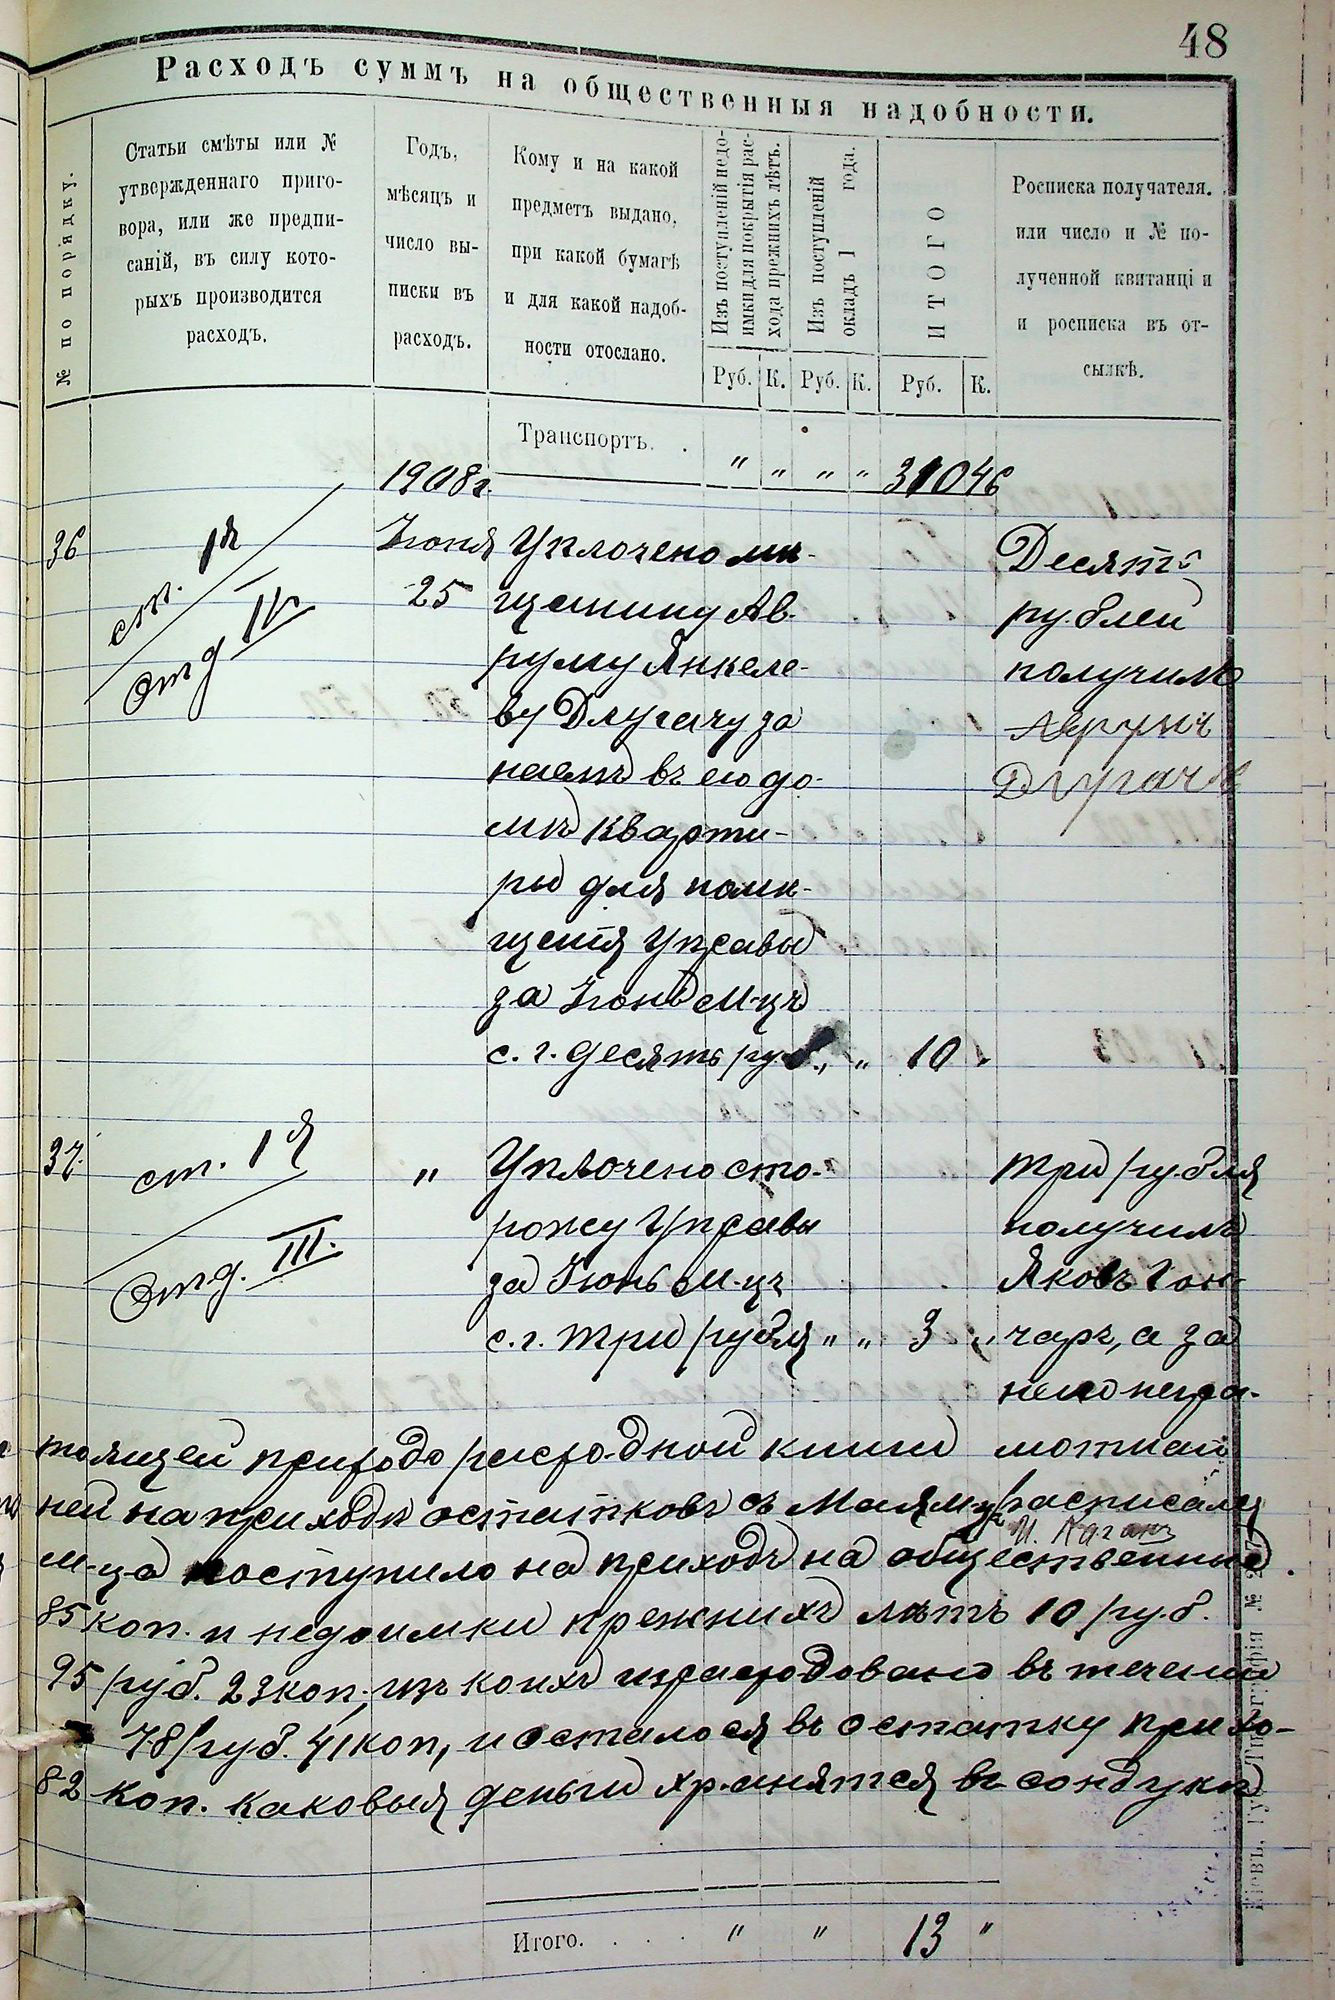 48
Расходъ суммъ на общественныя надобности.
№ по порядку.
Статьи смѣты или №
утвержденнаго приго-
вора, или же предпи-
саній, въ силу кото-
рыхъ производится
расходъ.
Годъ,
мѣсяцъ и
число вы-
писки въ
расходъ.
Кому и на какой
предметъ выдано,
при какой бумагѣ
и для какой надоб-
ности отослано.
Изъ поступленій недо-
имки для покрытія рас-
хода прежнихъ лѣтъ.
Изъ поступленій
окладъ 1 года.
ИТОГО
Росписка получателя.
или число и № по-
лученной квитанціи
и росписка въ от-
сылкѣ.
Руб. К. Руб. К. Руб. К.
Транспортъ. .
1908г. " " " " 310 46
36 ст. 1я
отд IV
Іюня
25
Уплочено мѣ-
щанину Ав-
руму Янкеле-
ву Длугачу за
наемъ въ его до-
мѣ кварти-
ры для помѣ-
щенія Управы
за Іюнь м-цъ
с. г. десять руб. „ „ 10 „
Десять
рублей
получилъ
Аврумъ
Длугачъ
37. ст. 1я
отд. III.
„
Уплочено сто-
рожу Управы
за Іюнь м-цъ
с. г. три рубля „ „ 3 „
три рубля
получилъ
Яковъ Гон-
чаръ, а за
него негра-
мотнаго
расписался
И. Каганъ
тоящей приходо расходной книги
ней на приходъ остатковъ съ Мая м-ца
м-ца поступило на приходъ на общественные
85 коп. и недоимки прежнихъ лѣтъ 10 руб.
95 руб. 23 коп., изъ коихъ израсходовано въ течении
78 руб. 41 коп, и осталося въ остатку прихо-
82 коп. каковыя деньги хранятся въ сондукѣ
Итого. . . . " " 13 "